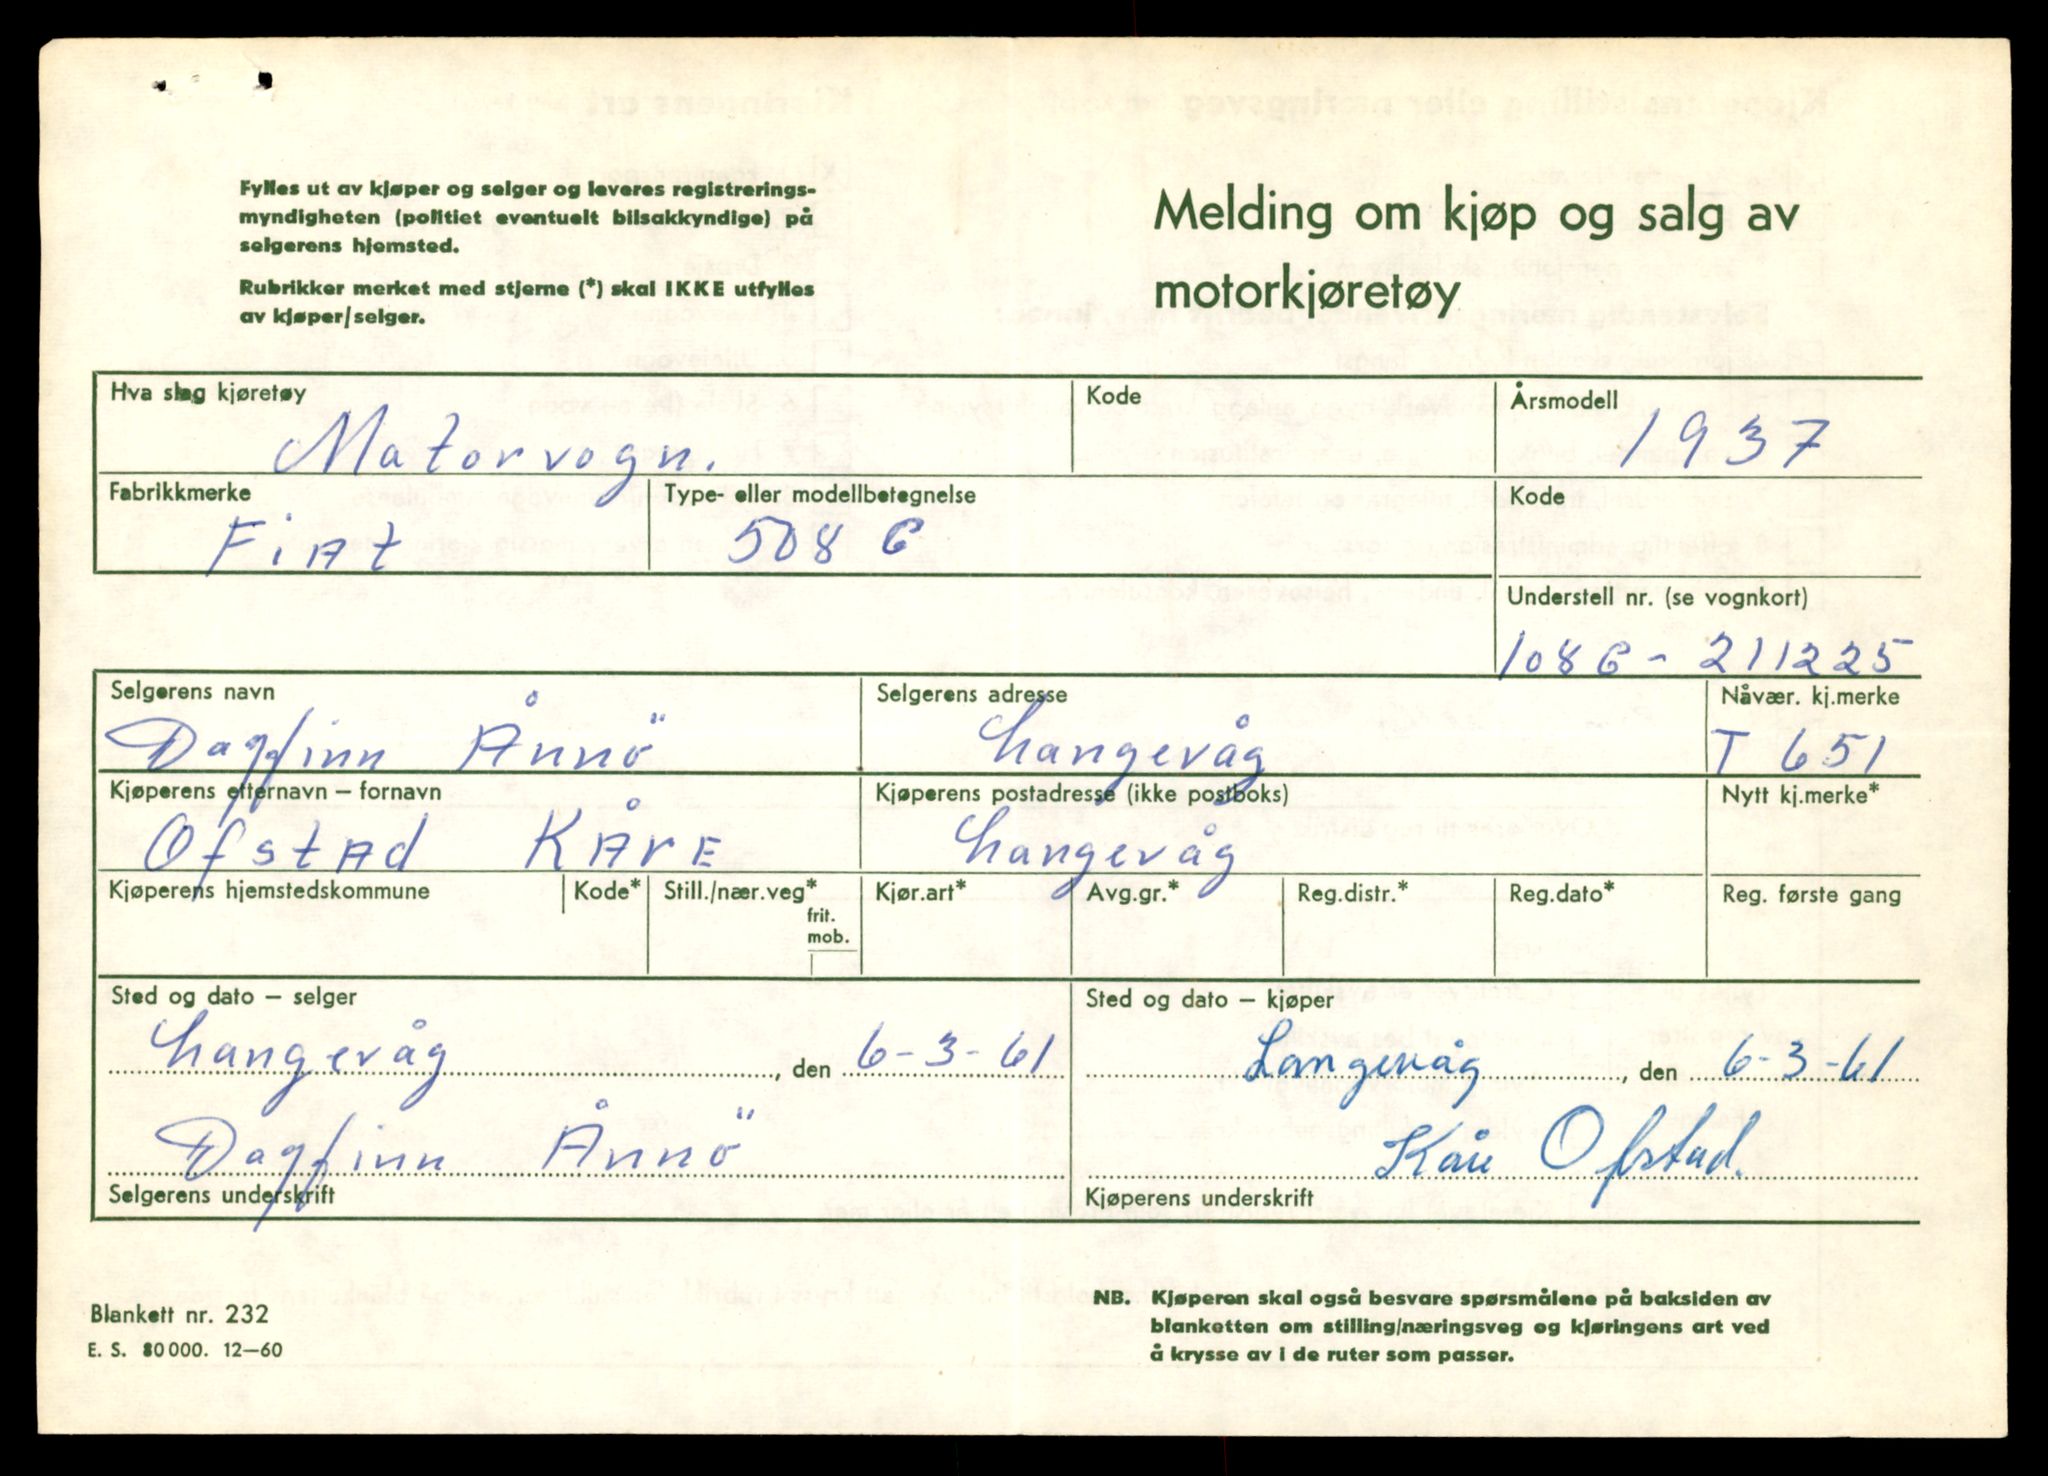 Fylles ut av kjøper og selger og leveres registrerings-
myndigheten (politiet eventuelt bilsakkyndige) på
selgerens hjemsted.
Rubrikker merket med stjerne (*) skal IKKE utfylles
av kjøper/selger.
Melding om kjøp og salg av
motorkjøretøy
Hva slag kjøretøy
Kode
Årsmodell
Matorvogn.
1937
Fabrikkmerke
Type- eller modellbetegnelse
Kode
Fiat
508 C
Understell nr. (se vognkort)
108 C - 211225
Selgerens navn
Selgerens adresse
Nåvær. kj.merke
Dagfinn Ånnö
Langevåg
T 651
Kjøperens etternavn – fornavn
Kjøperens postadresse (ikke postboks)
Nytt kj.merke*
Ofstad Kåre
Langevåg
Kjøperens hjemstedskommune
Kode*
Still./nær.veg*
frit.
mob.
Kjør.art*
Avg.gr.*
Reg.distr.*
Reg.dato*
Reg. første gang
Sted og dato – selger
Sted og dato – kjøper
Langevåg, den 6-3-61
Langevåg, den 6-3-61
Dagfinn Ånnö
Kåre Ofstad.
Selgerens underskrift
Kjøperens underskrift
Blankett nr. 232
E. S. 80 000. 12–60
NB. Kjøperen skal også besvare spørsmålene på baksiden av
blanketten om stilling/næringsveg og kjøringens art ved
å krysse av i de ruter som passer.